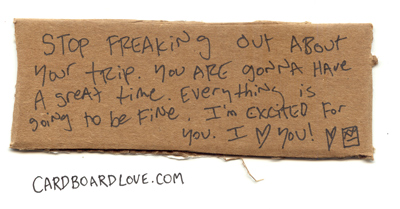 STOP FREAKING OUT ABOUT
YOUR TRIP. YOU ARE GONNA HAVE
A great time. Everything is
going to be FINE. I'm EXCITED FOR
YOU. I ♡ YOU! ♡
CARDBOARDLOVE.COM